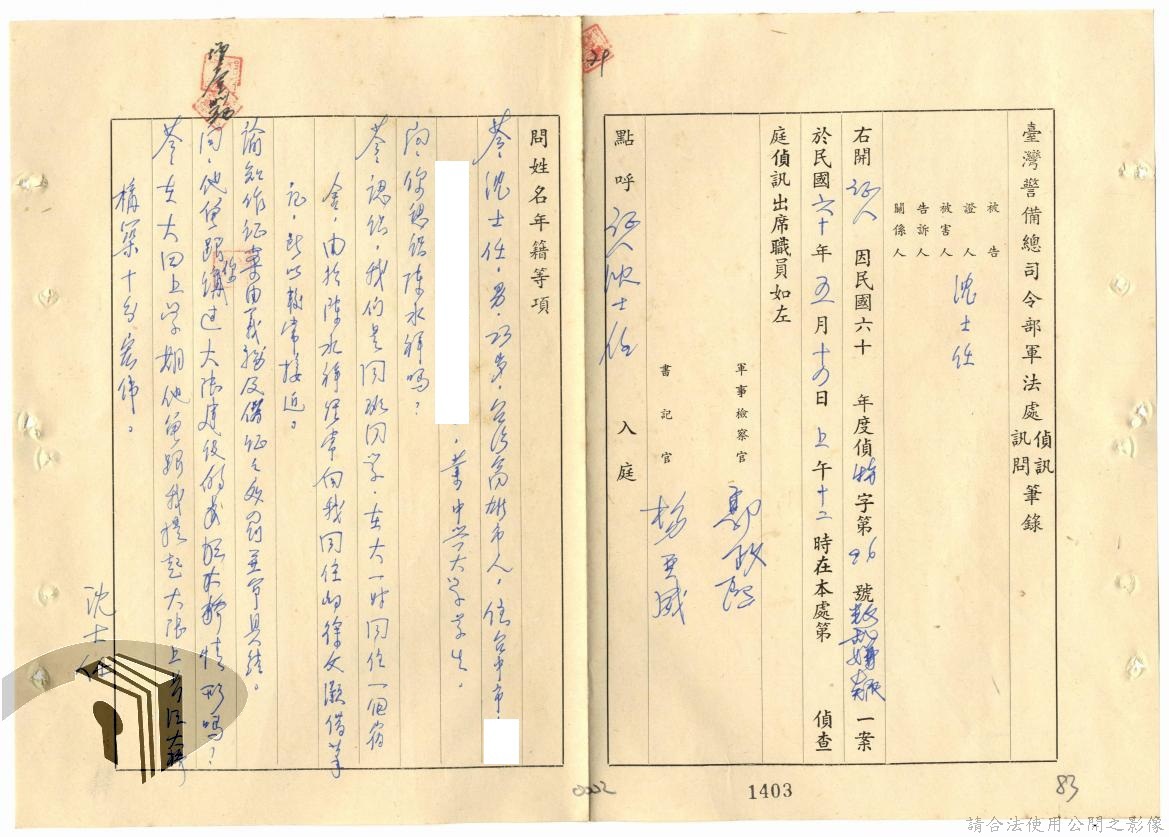 臺灣警備總司令部軍法處偵訊訊問筆錄
被告
證人
被害人
告訴人
關係人
沈士任
右開証人因民國六十年度偵特字第26號叛亂嫌疑一案
於民國六十年五月十四日上午十二時在本處第偵查
庭偵訊出席職員如左
軍事檢察官
書記官 楊亞威
點呼証人沈士任入庭
問姓名年籍等項
答沈士任,男,23歲,台灣高雄市人,住台中市
,業中興大學學生。
問:你認識陳水祥嗎?
答:認識,我們是同班同學,在大一時同住一個宿
舍,由於陳水祥經常向我同住的徐文灝借筆
記,所以較常接近。
諭知作証義務及偽証之處罰並命具結。
問:他曾跟你講過大陸建設的
情形嗎?
答:在大四上學期他曾跟我提起大陸上
構築十分宏偉。
沈士任
24
0002
1403
83
請合法使用公開之影像